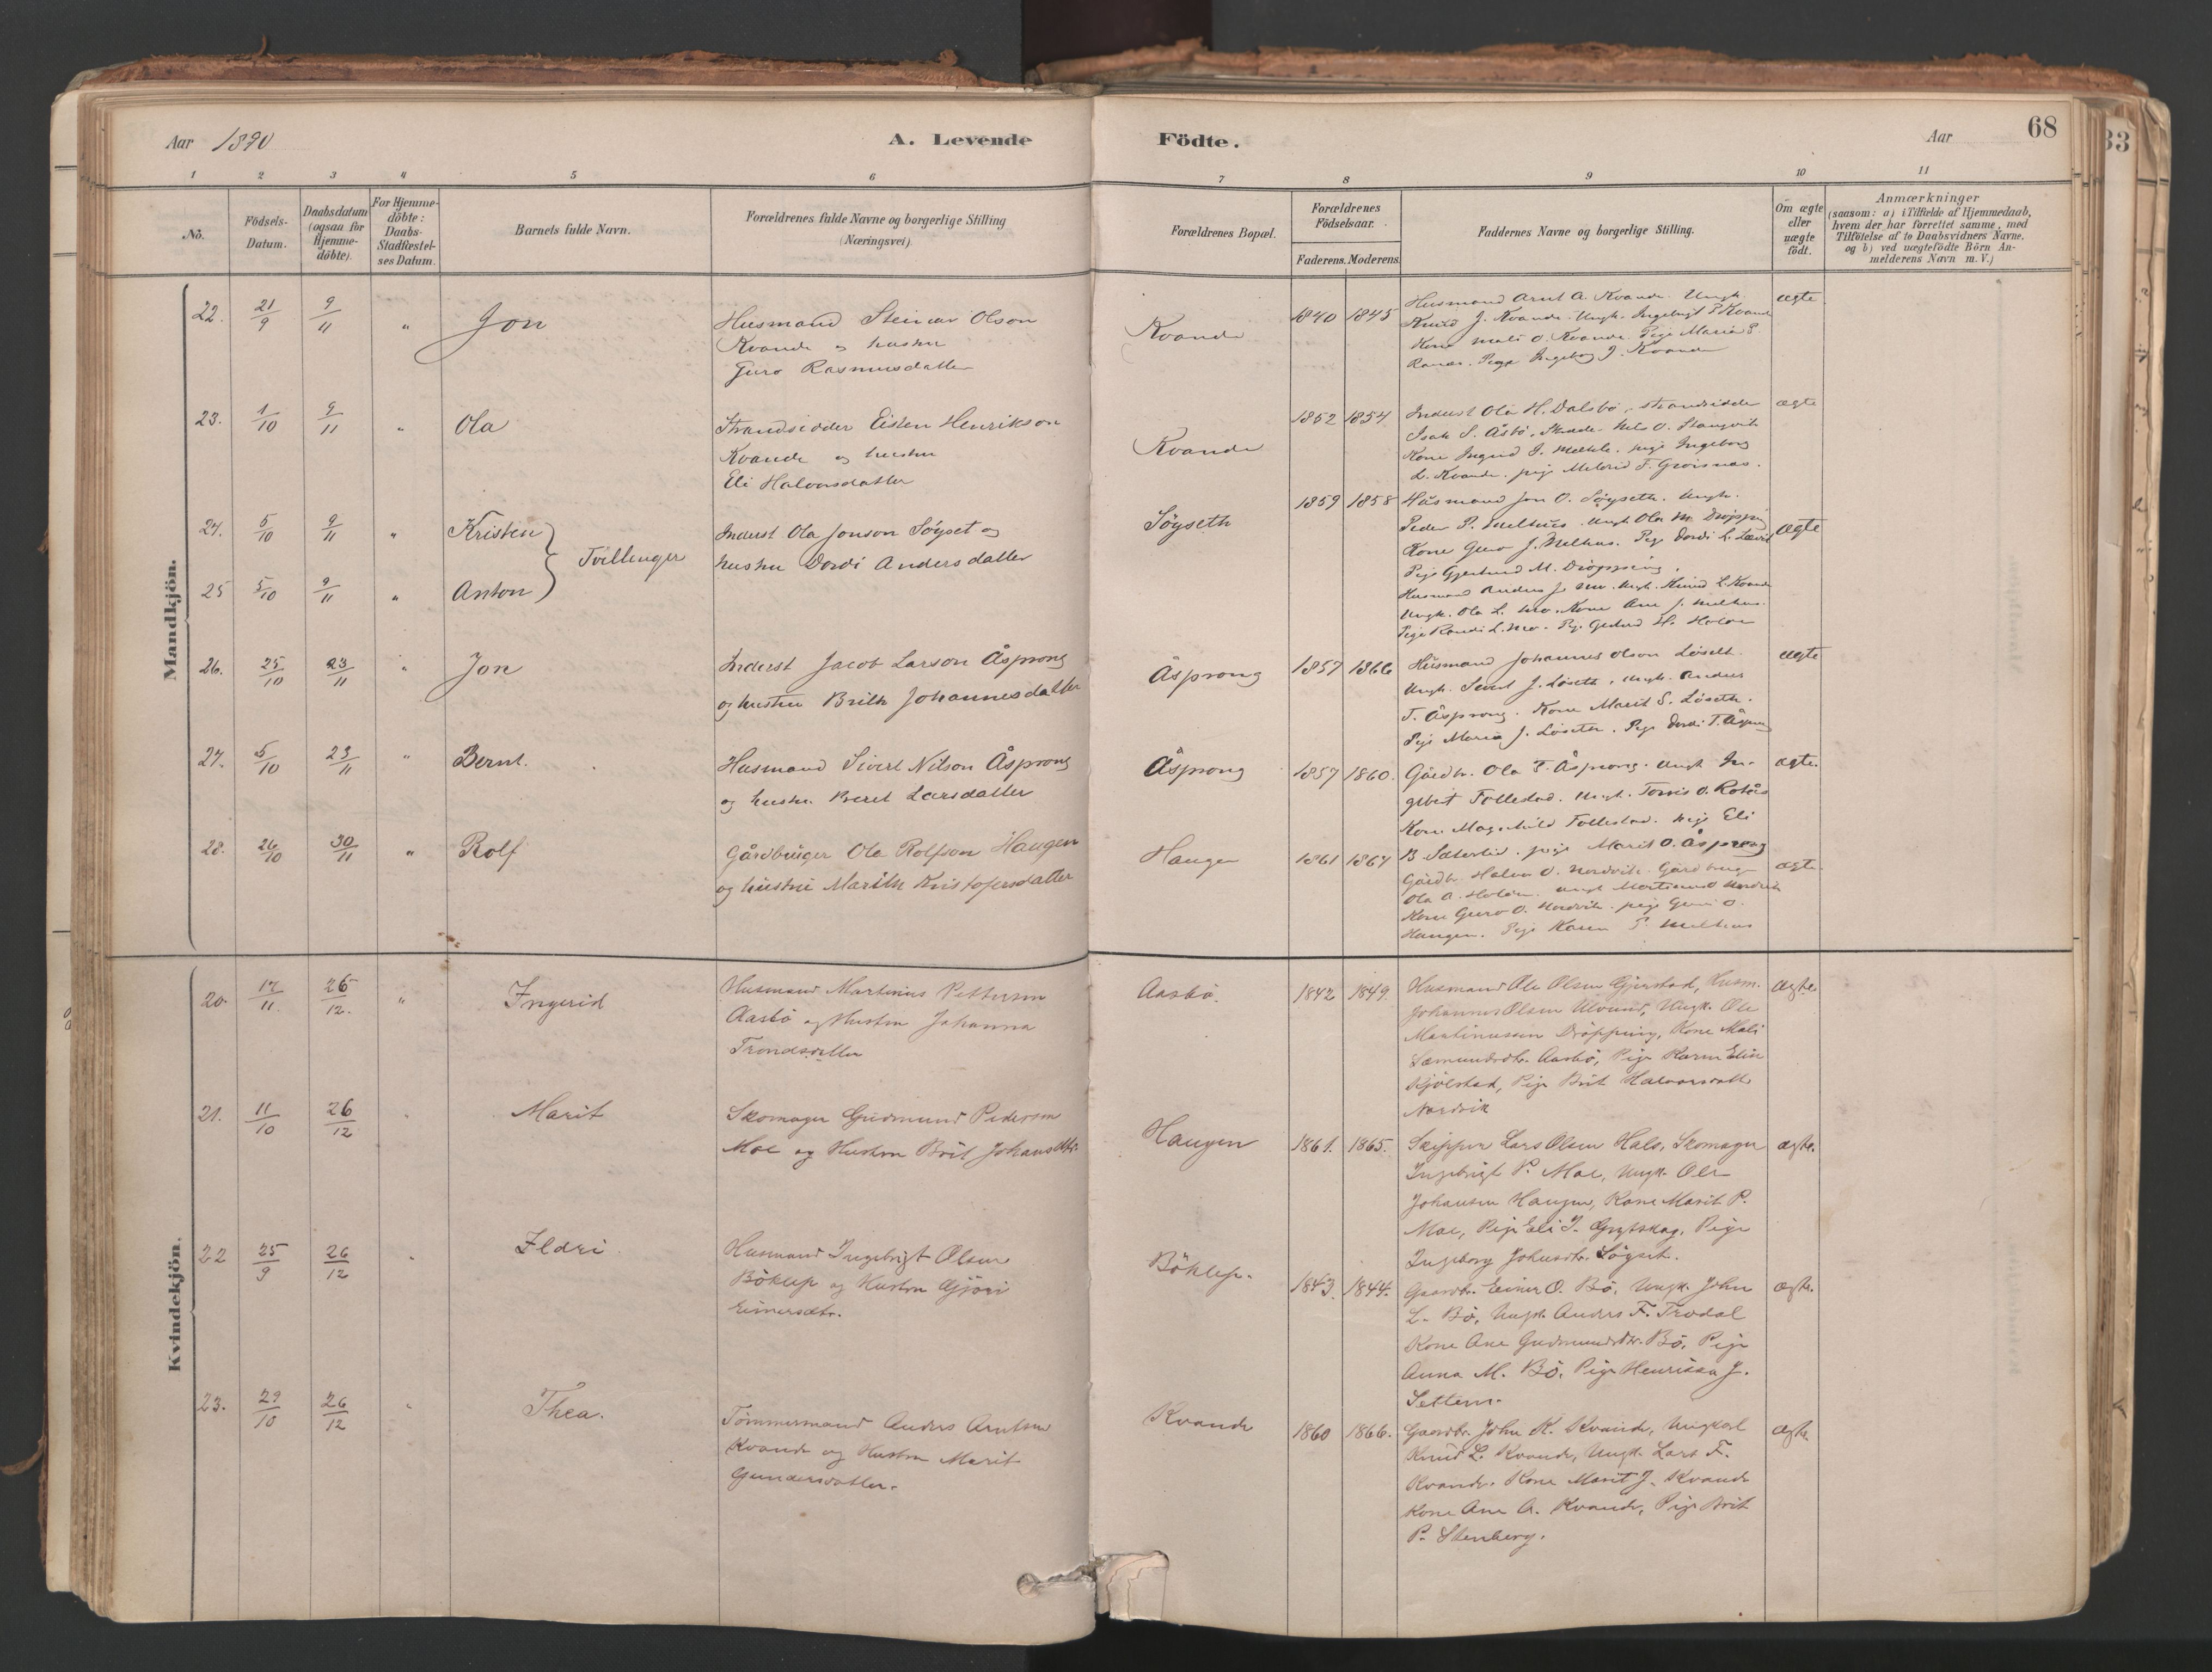 Aar 1890
A. Levende
Födte.
Aar
68
33
1 2 3 4 5 6 7 8 9 10 11
No.
Födsels-
Datum.
Daabsdatum
(ogsaa for
Hjemme-
döbte).
For Hjemme-
döbte:
Daabs-
Stadfæstel-
ses Datum.
Barnets fulde Navn.
Forældrenes fulde Navne og borgerlige Stilling
(Næringsvei).
Forældrenes Bopæl.
Forældrenes
Födselsaar.
Faderens. Moderens.
Faddernes Navne og borgerlige Stilling.
Om ægte
eller
uægte
födt.
Anmærkninger
(saasom: a) i Tilfælde af Hjemmedaab,
hvem der har forrettet samme, med
Tilföielse af to Daabsvidners Navne.
og b) ved uægtefödte Börn An-
melderens Navn m. V.)
Mandkjön.
22. 21/9 9/11 " Jon
Husmand Steinar Olson
Kvande og hustru
Guro Rasmusdatter
Kvande
1840 1845
Husmand Arnt A. Kvande. Ungk.
Knud J. Kvande. Ungk. Ingebrigt P. Kvande
Kone Mali O. Kvande. Pige Maria P.
Pige Ingeborg J. Kvande
ægte
23. 1/10 9/11 " Ola
Strandsidder Eisten Henrikson
Kvande og hustru
Eli Halvorsdatter
Kvande
1852 1854
Inderst Ola H. Dalsbö, strandsidder
Isak S. Åsbö. Nils O. Stangvik
Kone Ingrid J. Melhus. pige Ingeborg
L. Kvande. pige Mildrid F. Grøisnæs.
ægte
24. 5/10 9/11 " Kristen
Tvillinger
25 5/10 9/11 " Anton
Inderst Ola Jonson Söyset og
hustru Dordi Andersdatter
Söyseth
1859 1858
Husmand Jon O. Söyseth. Ungk.
Peder P. Melhus. Ungk Ola M. Dröpping
Kone Guro J. Melhus. Pige Dordi L.
Pige Gjertrud M. Dröpping.
Husmand Anders J. Mo. Ungk. Knud L. Kvande
Ungk. Ola L. Mo. Kone Ane J. Melhus.
Pige Randi L. Mo. Pige H. Holen
ægte
26. 25/10 23/11 " Jon
Inderst Jacob Larson Åsprong
og hustru Brith Johannesdatter
Åsprong
1857 1866
Husmand Johannes Olson Löseth.
Ungk. Sivert J. Löseth. Ungk. Anders
T. Åsprong. Kone Marit S. Löseth.
Pige Maria J. Löseth. Pige Dordi T. Åsprong
ægte
27. 5/10 23/11 " Bernt.
Husmand Sivert Nilson Åsprong
og hustru Beret Larsdatter
Åsprong
1857 1860.
Gårdb. Ola T. Åsprong. Ungk In-
gebrit Follestad. Ungk. Torris O. Rotås
Kone Magnhild Follestad. Pige Eli
B. Sæterlid. pige Marit O. Åsprong
ægte.
28. 26/10 30/11 " Rolf
Gårdbruger Ola Rolfson Haugen
og hustru Marith Kristofersdatter
Haugen
1861 1867
Gårdb. Halvor O. Nordvik. Gårdbruger
Ola A. Holen. Ungk Martinus O Nordvik
Kone Guro O. Nordvik. pige Guri O.
Haugen. Pige Karen P. Melhus
ægte.
Kvindekjön.
20. 17/11. 26/12. " Ingerid
Husmand Martinus Petterson
Aasbö og Hustru Johanna
Trondsdatter
Aasbö.
1842 1849.
Husmand Ole Olsen Gjerstad, Husm.
Johannes Olsen Ulvund, Ungk. Ole
Martinussen Dröpping, Kone Mali
Sæmundsdtr. Aasbö, Pige Karen Elise
Kjölstad, Pige Brit Halvorsdatt.
Nordvik
Ægte
21. 11/10 26/12 " Marit
Skomager Gudmund Pederson
Moe og Hustru Brit Johansdtr.
Haugen
1861. 1865.
Skipper Lars Olsen Hals, Skomager
Ingebrigt P. Moe, Ungk. Ole
Johansen Haugen, Kone Marit P.
Moe, Pige Eli J. Grytskog, Pige
Ingeborg Johnsdtr. Sögset.
ægte.
22 25/9 26/12 " Ildri
Husmand Ingebrigt Olsen
Böklep og Hustru Gjöri
Einersdtr.
Böklep.
1843. 1844.
Gaardbr. Einer O. Bö, Ungk. John
L. Bö, Ungk. Anders F. Trodal
Kone Ane Gudmundsdtr. Bö, Pige
Anna M. Bö, Pige Henrikka J.
Settem.
ægte.
23. 29/10 26/12 " Thea.
Tömmermand Anders Arntsen
Kvande og Hustru Marit
Gundersdatter.
Kvande
1860 1866.
Gaardbr. John K. Kvande, Ungkarl
Knud L. Kvande, Ungk. Lars F.
Kvande. Kone Marit J. Kvande
Kone Ane A. Kvande, Pige Brit
P. Stenberg.
ægte